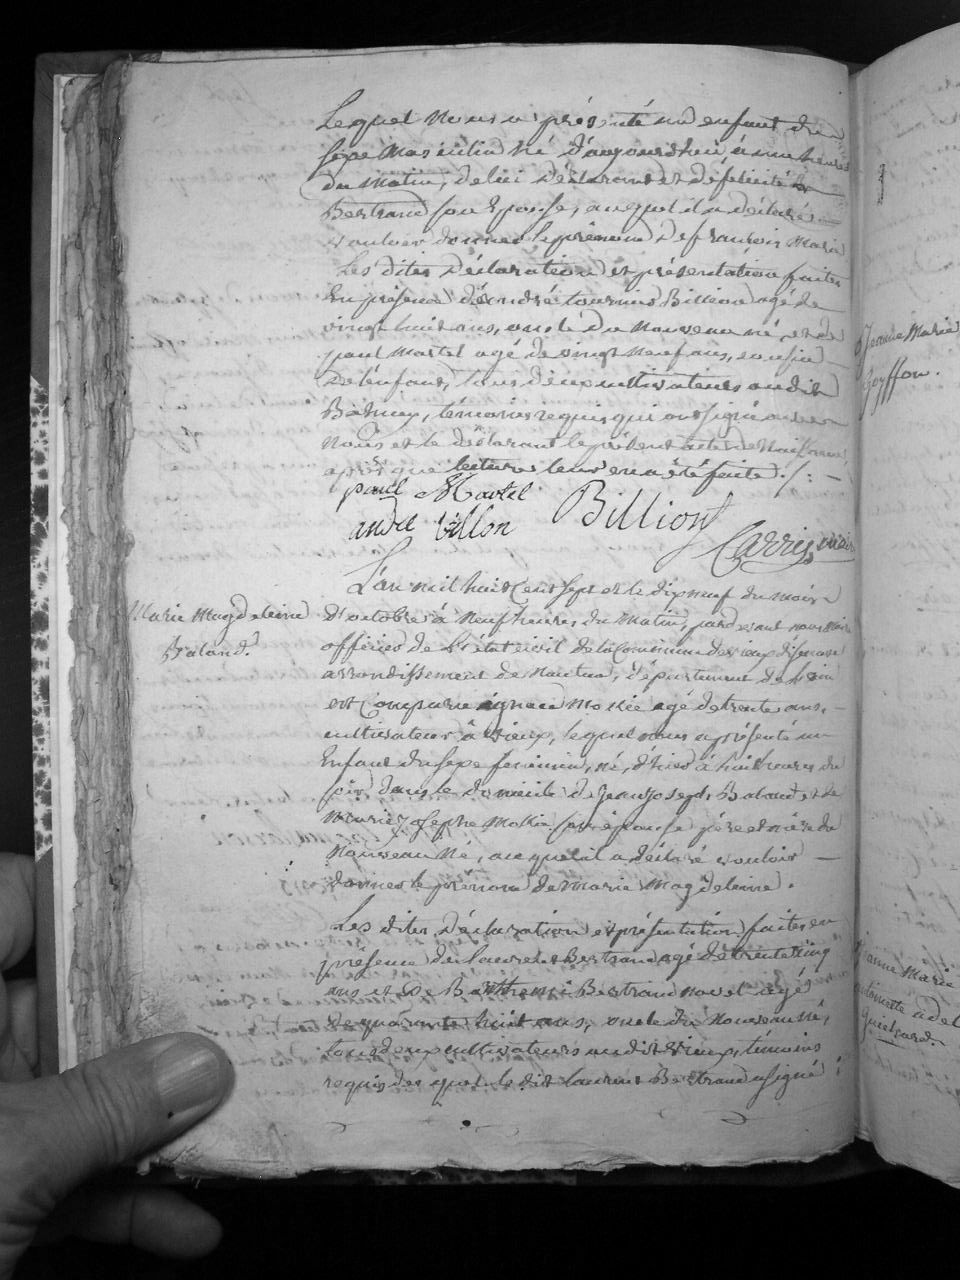 Lequel Nous a présenté un enfant du
sexe Masculin Né d'aujourdhui à heures
du Matin, de lui Déclarant et de félicité
Bertrand son Epouse, auquel il a déclaré
vouloir donner le prénom de françois Marie
Les dites Déclaration et présentation faites
En présence d'andré Billion agé de
vingt huit ans, oncle du Nouveau né, et de
paul Martel agé de vingt Neuf ans, cousin
De l'enfant, tous deux cultivateurs audit
témoins requis qui ont signé avec
Nous et le déclarant le présent acte de Naissance
après que lecture leur en a été faite ./.
paul Martel Billion
andré Billon Carrier, maire
L'an mil huit Cent Sept et le dix neuf du mois
Marie Magdeleine
Baland.
D'octobre à Neuf heures du Matin, pardevant nous Maire
officier de L'état civil de la Commune de
arrondissement de Nantua, département de L'ain
est Comparu ignace agé de trente ans,
cultivateur à vieux, lequel nous a présenté un
Enfant du sexe féminin, né, d'hier à huit heures du
soir dans le domicile de Jean Joseph Baland et de
Marie Josephe Mollie son épouse père et mère du
Nouveau Né, auquel il a déclaré vouloir
donner le prénom de marie Magdeleine.
Les dites Déclaration et présentation faites en
présence de laurent Bertrand agé de trente cinq
ans et De Barthelemi Bertrand agé
De quarante huit ans, oncle du Nouveau Né,
tous deux cultivateurs audit vieux, témoins
requis des quels le dit laurent Bertrand a signé
Jeanne Marie
Goyffon.
Jeanne Marie
antoinette adel